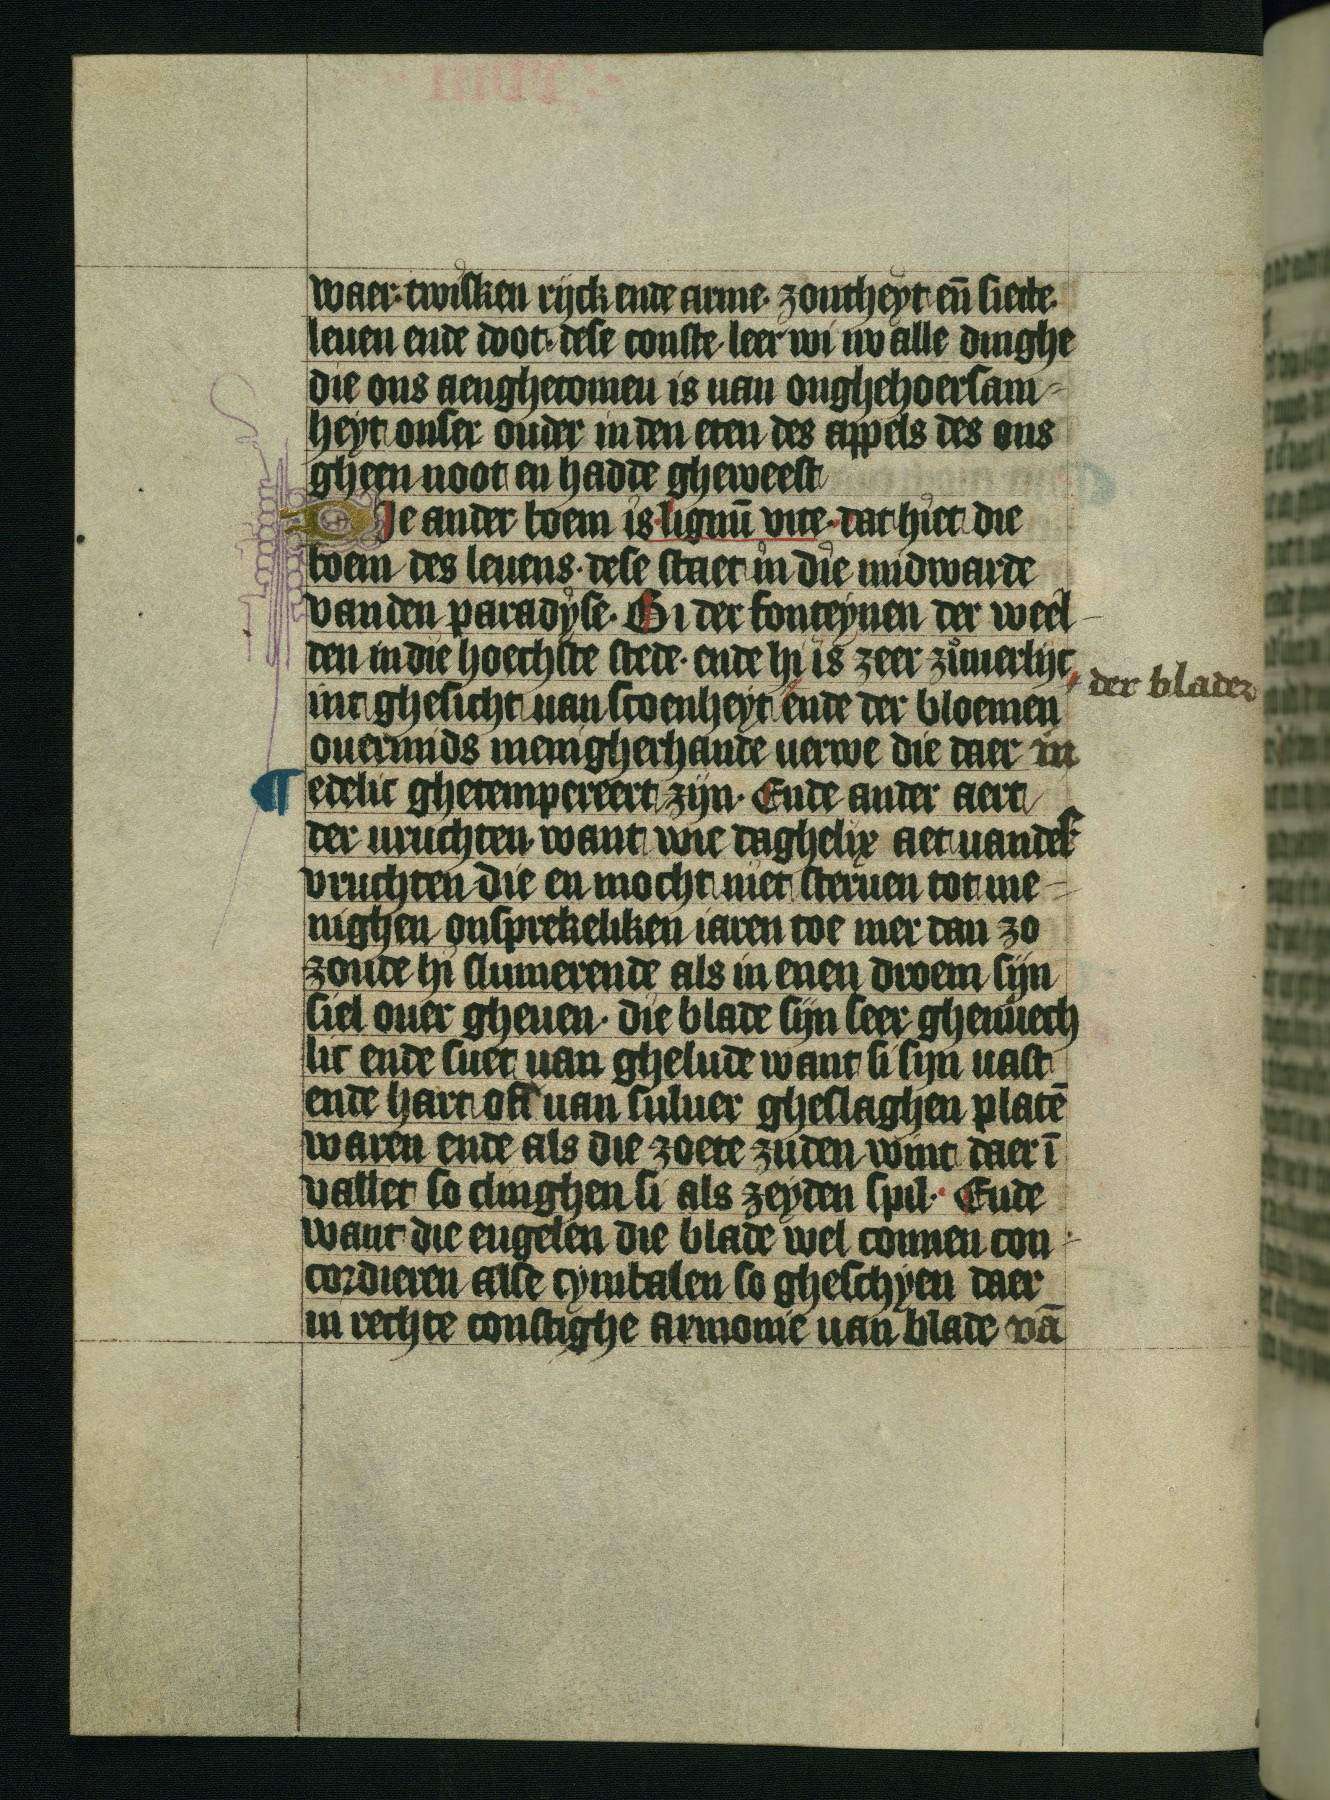 waer· twisken rijck ende arme· zontheyt en̄ siecte·
leuen ende doot· dese conste· leer wi uv alle dinghe
die ons aenghecomen is uan onghehoersam-
heyt onser ouder in den eten des appels des ons
gheen noot en hadde gheweest
Die ander boem is· lignū vite· dat hiet die
boem des leuens· dese staet in die midwarde
van den paradyse· Bi der fonteynen der weel-
den in die hoechste stede· ende hi is zeer zuuerlijc
der blader
int ghesicht uan scoenheyt ende der bloemen
ouermids menigherhande uerwe die daer in
edelic ghetempereert zijn· Ende ander aert
der uruchten· want wie daghelix aet uan deser
vruchten die en mocht niet steruen tot me-
nighen onsprekeliken iaren toe mer dan zo
zoude hi slumerende als in enen droem sijn
siel ouer gheuen· die blade sijn seer ghenuech
lic ende suet uan ghelude want si sijn uast
ende hart oft uan suluer gheslaghen platē
waren ende als die zoete zuden wint daer ī
vallet so clinghen si als zeyden spil· Ende
want die engelen die blade wel connen con-
cordieren alse cymbalen so gheschyen daer
in rechte constighe armonie uan blade vā